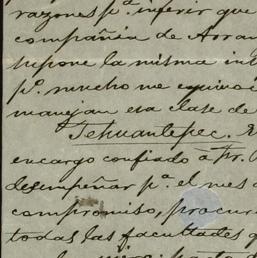 razones pª. inferir que
compañia de Aoran
supone la misma int
pº. mucho me equivo
manejan esa clase de
Tehuantepec. E
encargo confiado á Fr.
desempeñar pª. el mes d
compromiso, procur
todas las facultades q